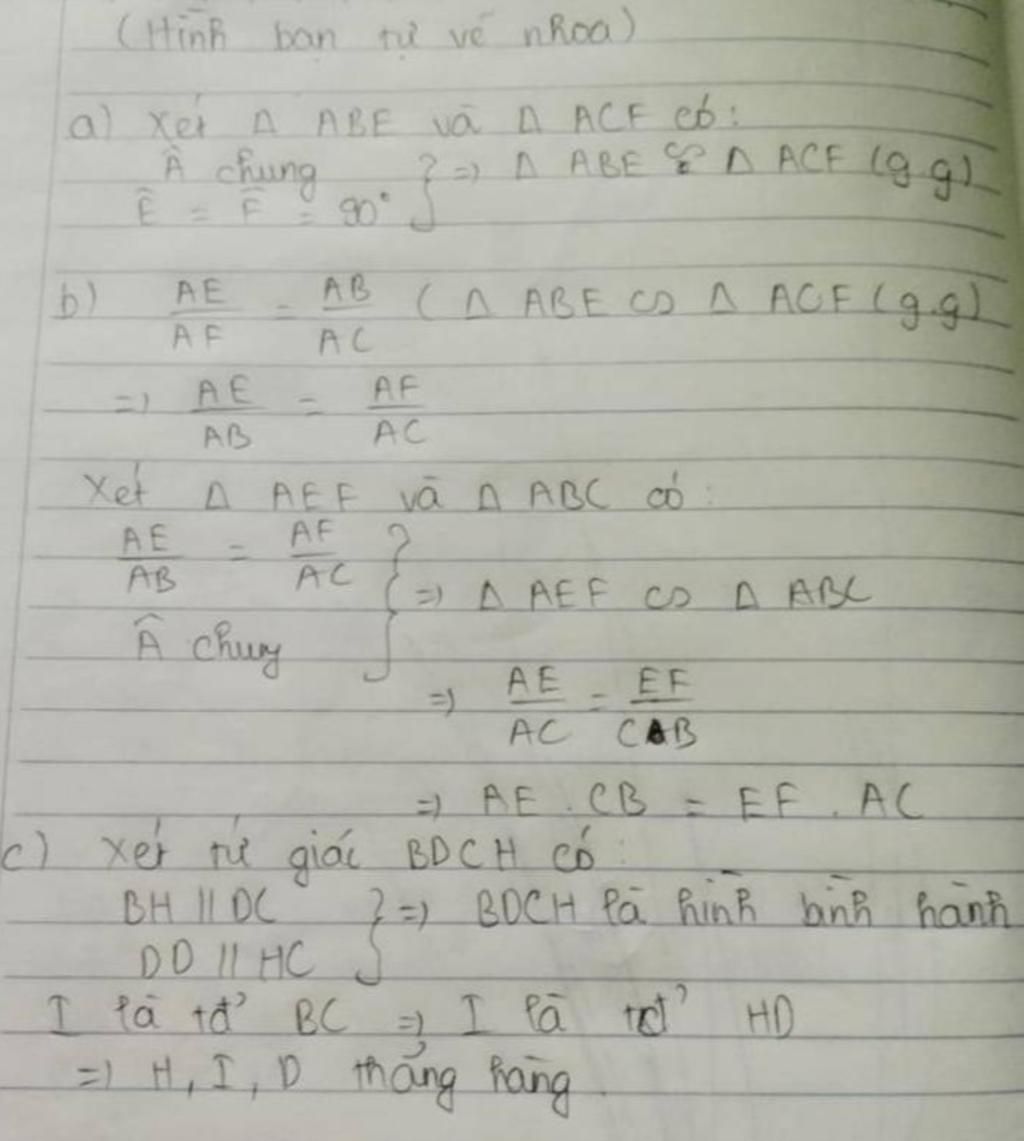 (Hình bạn tự vẽ nhoa)
a) Xét Δ ABE và Δ ACF có:
Â chung } => Δ ABE ∽ Δ ACF (g.g)
Ê = F̂ = 90°
b) AE/AF = AB/AC (Δ ABE ∽ Δ ACF (g.g)
=> AE/AB = AF/AC
Xét Δ AEF và Δ ABC có:
AE/AB = AF/AC } => Δ AEF ∽ Δ ABC
Â chung
=> AE/AC = EF/CB
=> AE . CB = EF . AC
c) Xét tứ giác BDCH có:
BH // DC } => BDCH là hình bình hành
DD // HC
I là tđ' BC => I là tđ' HD
=> H, I, D thẳng hàng.